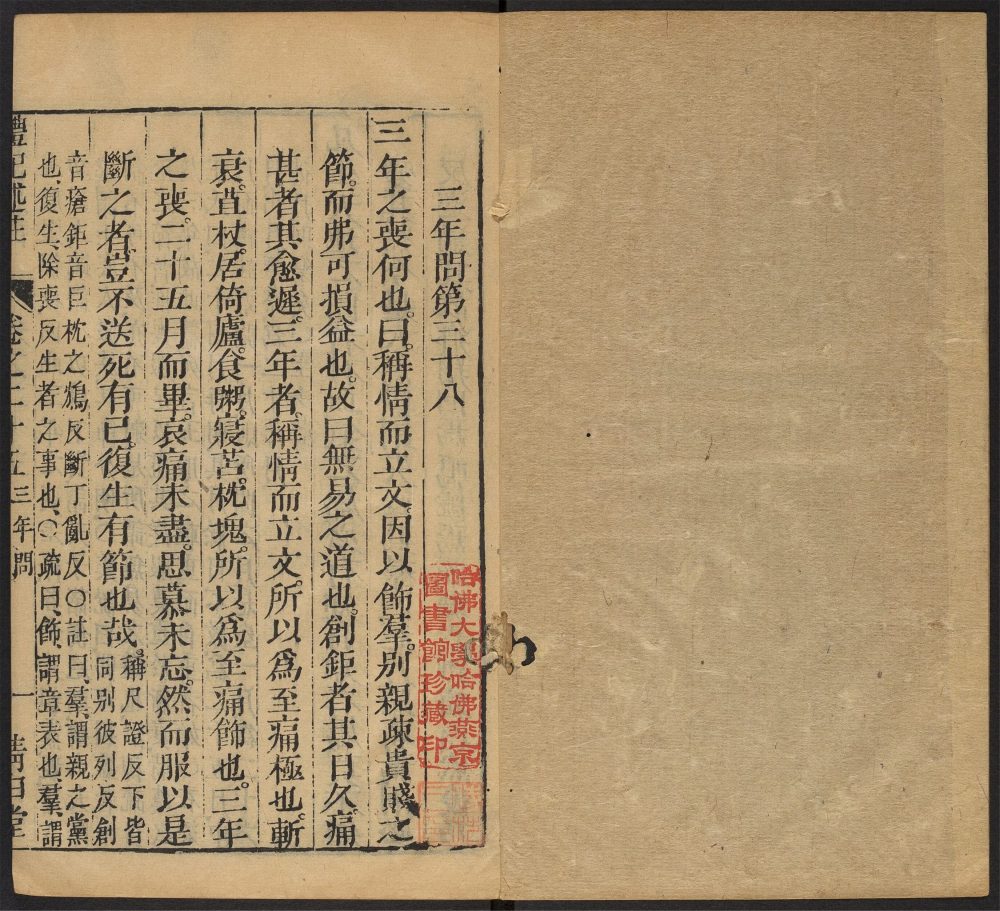 三年問第三十八
三年之喪何也。曰、稱情而立文。因以飾羣。別親疎貴賤之
節。而弗可損益也。故曰無易之道也。創鉅者其日久。痛
甚者其愈遲。三年者、稱情而立文。所以爲至痛極也。斬
衰。苴杖。居倚廬。食粥。寢苫。枕塊。所以爲至痛飾也。三年
之喪。二十五月而畢。哀痛未盡。思慕未忘。然而服以是
斷之者、豈不送死有已。復生有節也哉。
稱尺證反下皆
同別彼列反創
音瘡鉅音巨枕之鴆反斷丁亂反〇註曰、羣、謂親之黨
也、復生、除喪反生者之事也、〇疏曰、飾、謂章表也、羣、謂
禮記述註
卷之二十五 三年問
一
清白堂
哈佛大學哈佛燕京
圖書館珍藏印